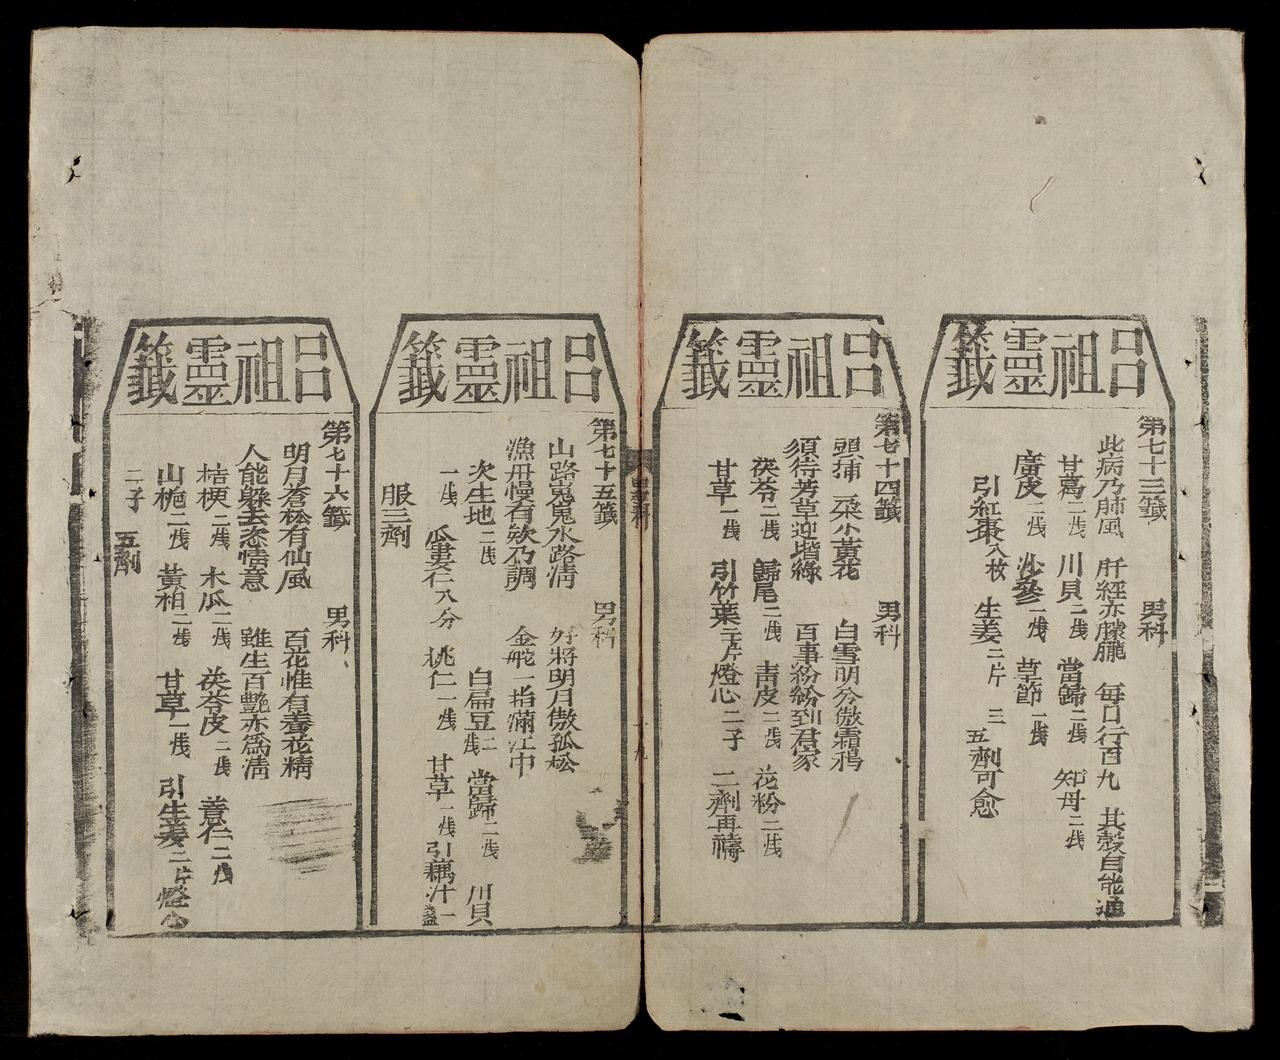 呂祖靈籤
第七十三籤 男科
此病乃肺風 肝經亦朦朧 每日行百九 其殼自能通
甘葛二戋 川貝二戋 當歸二戋 知母二戋
廣皮二戋 沙參一戋 草節一戋
引紅棗八枚 生姜二片 三五劑可愈
呂祖靈籤
第七十四籤 男科
頭插 朶小黃花 白雪明分傲霜鴉
須待芳草迎堦綠 百事紛紛到君家
茯苓二戋 歸尾二戋 青皮二戋 花粉二戋
甘草一戋 引竹葉二片燈心二子 二劑再禱
男科
十九
呂祖靈籤
第七十五籤 男科
山路嵬嵬水路清 好將明月傲孤松
漁舟慢有欸乃調 金舵一指滿江中
次生地二戋 白扁豆二戋 當歸二戋 川貝
一戋 瓜婁仁八分 桃仁一戋 甘草一戋引藕汁一盞
服三劑
呂祖靈籤
第七十六籤 男科
明月蒼松有仙風 百花惟有養花精
人能躲去恣情意 雖生百艷亦為清
桔梗二戋 木瓜二戋 茯苓皮二戋 薏仁二戋
山梔二戋 黃柏二戋 甘草一戋 引生姜二片燈心
二子 五劑